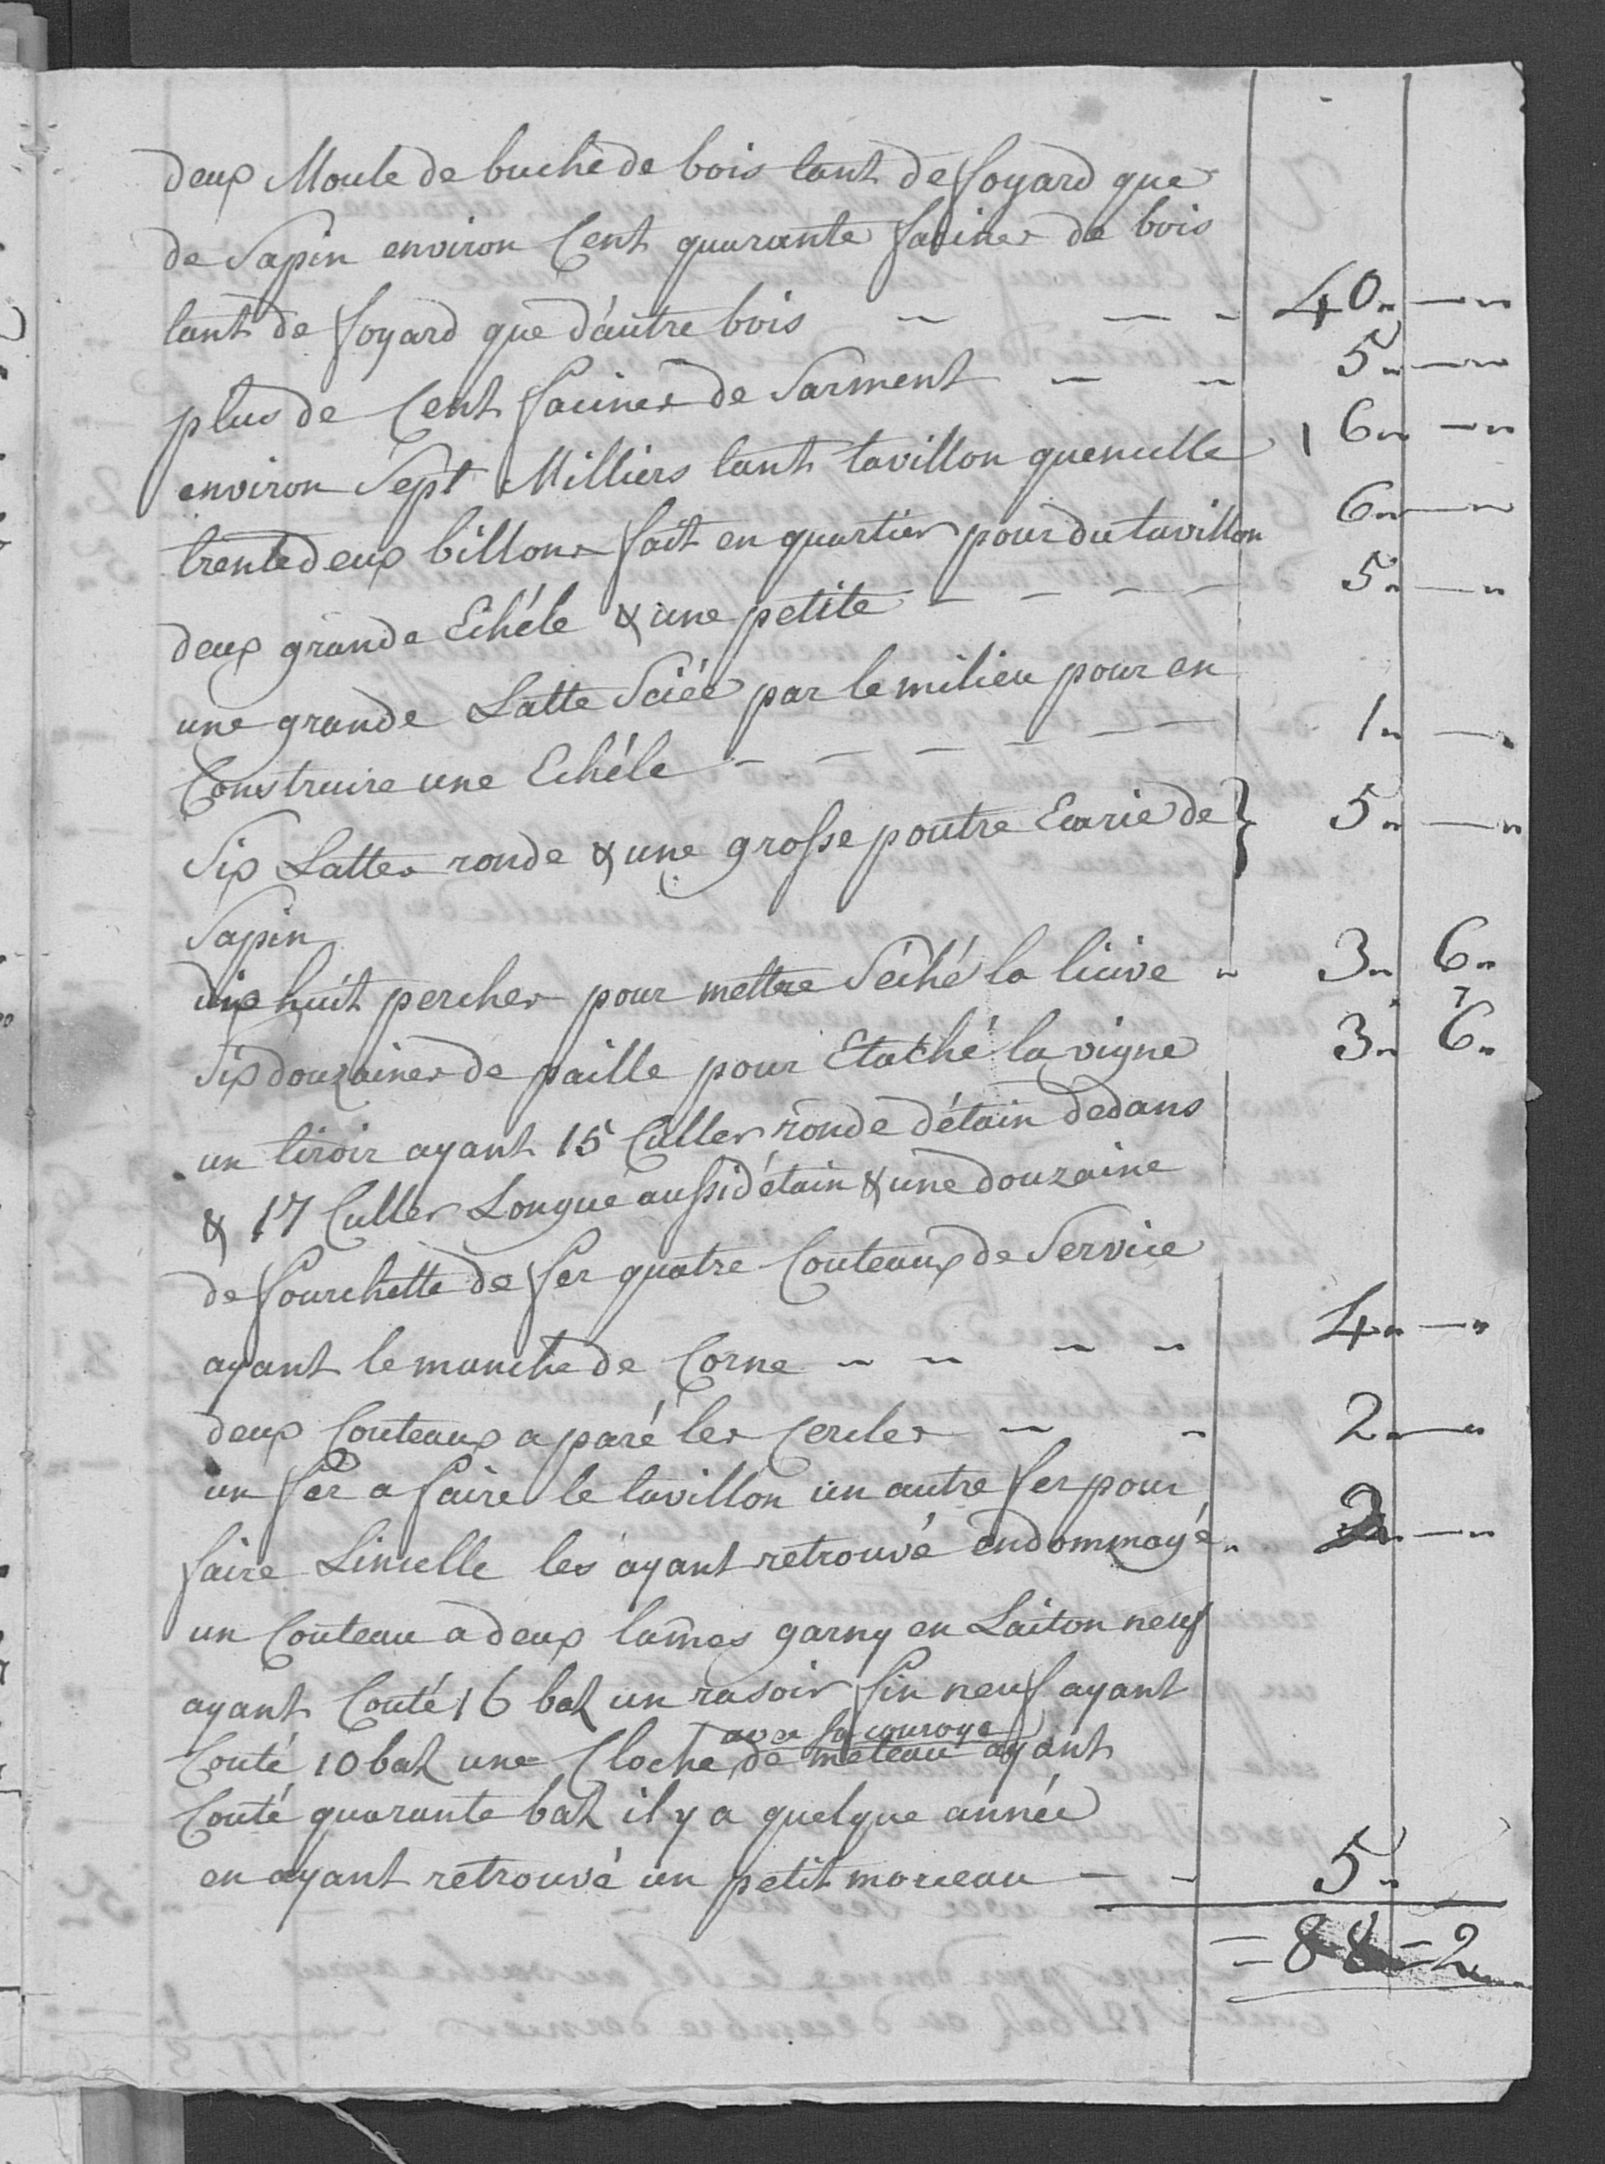 deux Moule de buche de bois tant de foyard que
de Sapin environ Cent quarante facines de bois
tant de foyard que d'autre bois — — - 40.. — ..
plus de Cent facines de Sarment — - 5.. — ..
environ Sept Milliers tant tavillon quencelle 16.. — ..
trente deux billons fait en quartier pour du tavillon 6.. — ..
deux grande Echéle & une petite — — — — 5.. — ..
une grande Latte Sciéé par le milieu pour en
Construire une Echéle - — — — — — 1.. — ..
Six Lattes ronde & une grosse poutre Ecarie de } 5.. — ..
Sapin
dix huit perches pour mettre Séché la licive - 3.. 6..
Six douzaines de paille pour Etaché la vigne 3.. 6..
un tiroir ayant 15 Culler ronde d'étain dedans
& 17 Culler Longue aussi d'étain & une douzaine
de fourchette de fer quatre Couteaux de Service
ayant le manche de Corne - - - - 4.. — ..
deux Couteaux a paré les Cercles — - 2.. — ..
un fer a faire le tavillon un autre fer pour
faire Lincelle les ayant retrouvé endommagé.. 2.. — ..
un Couteau a deux lames garny en Laiton neuf
ayant Couté 16 batz un rasoir fin neuf ayant
avec sa couroye
Couté 10 batz une Cloche de meteau ayant
Couté quarante batz il y a quelque année
en ayant retrouvé un petit morceau — - 5..
= 88 = 2..